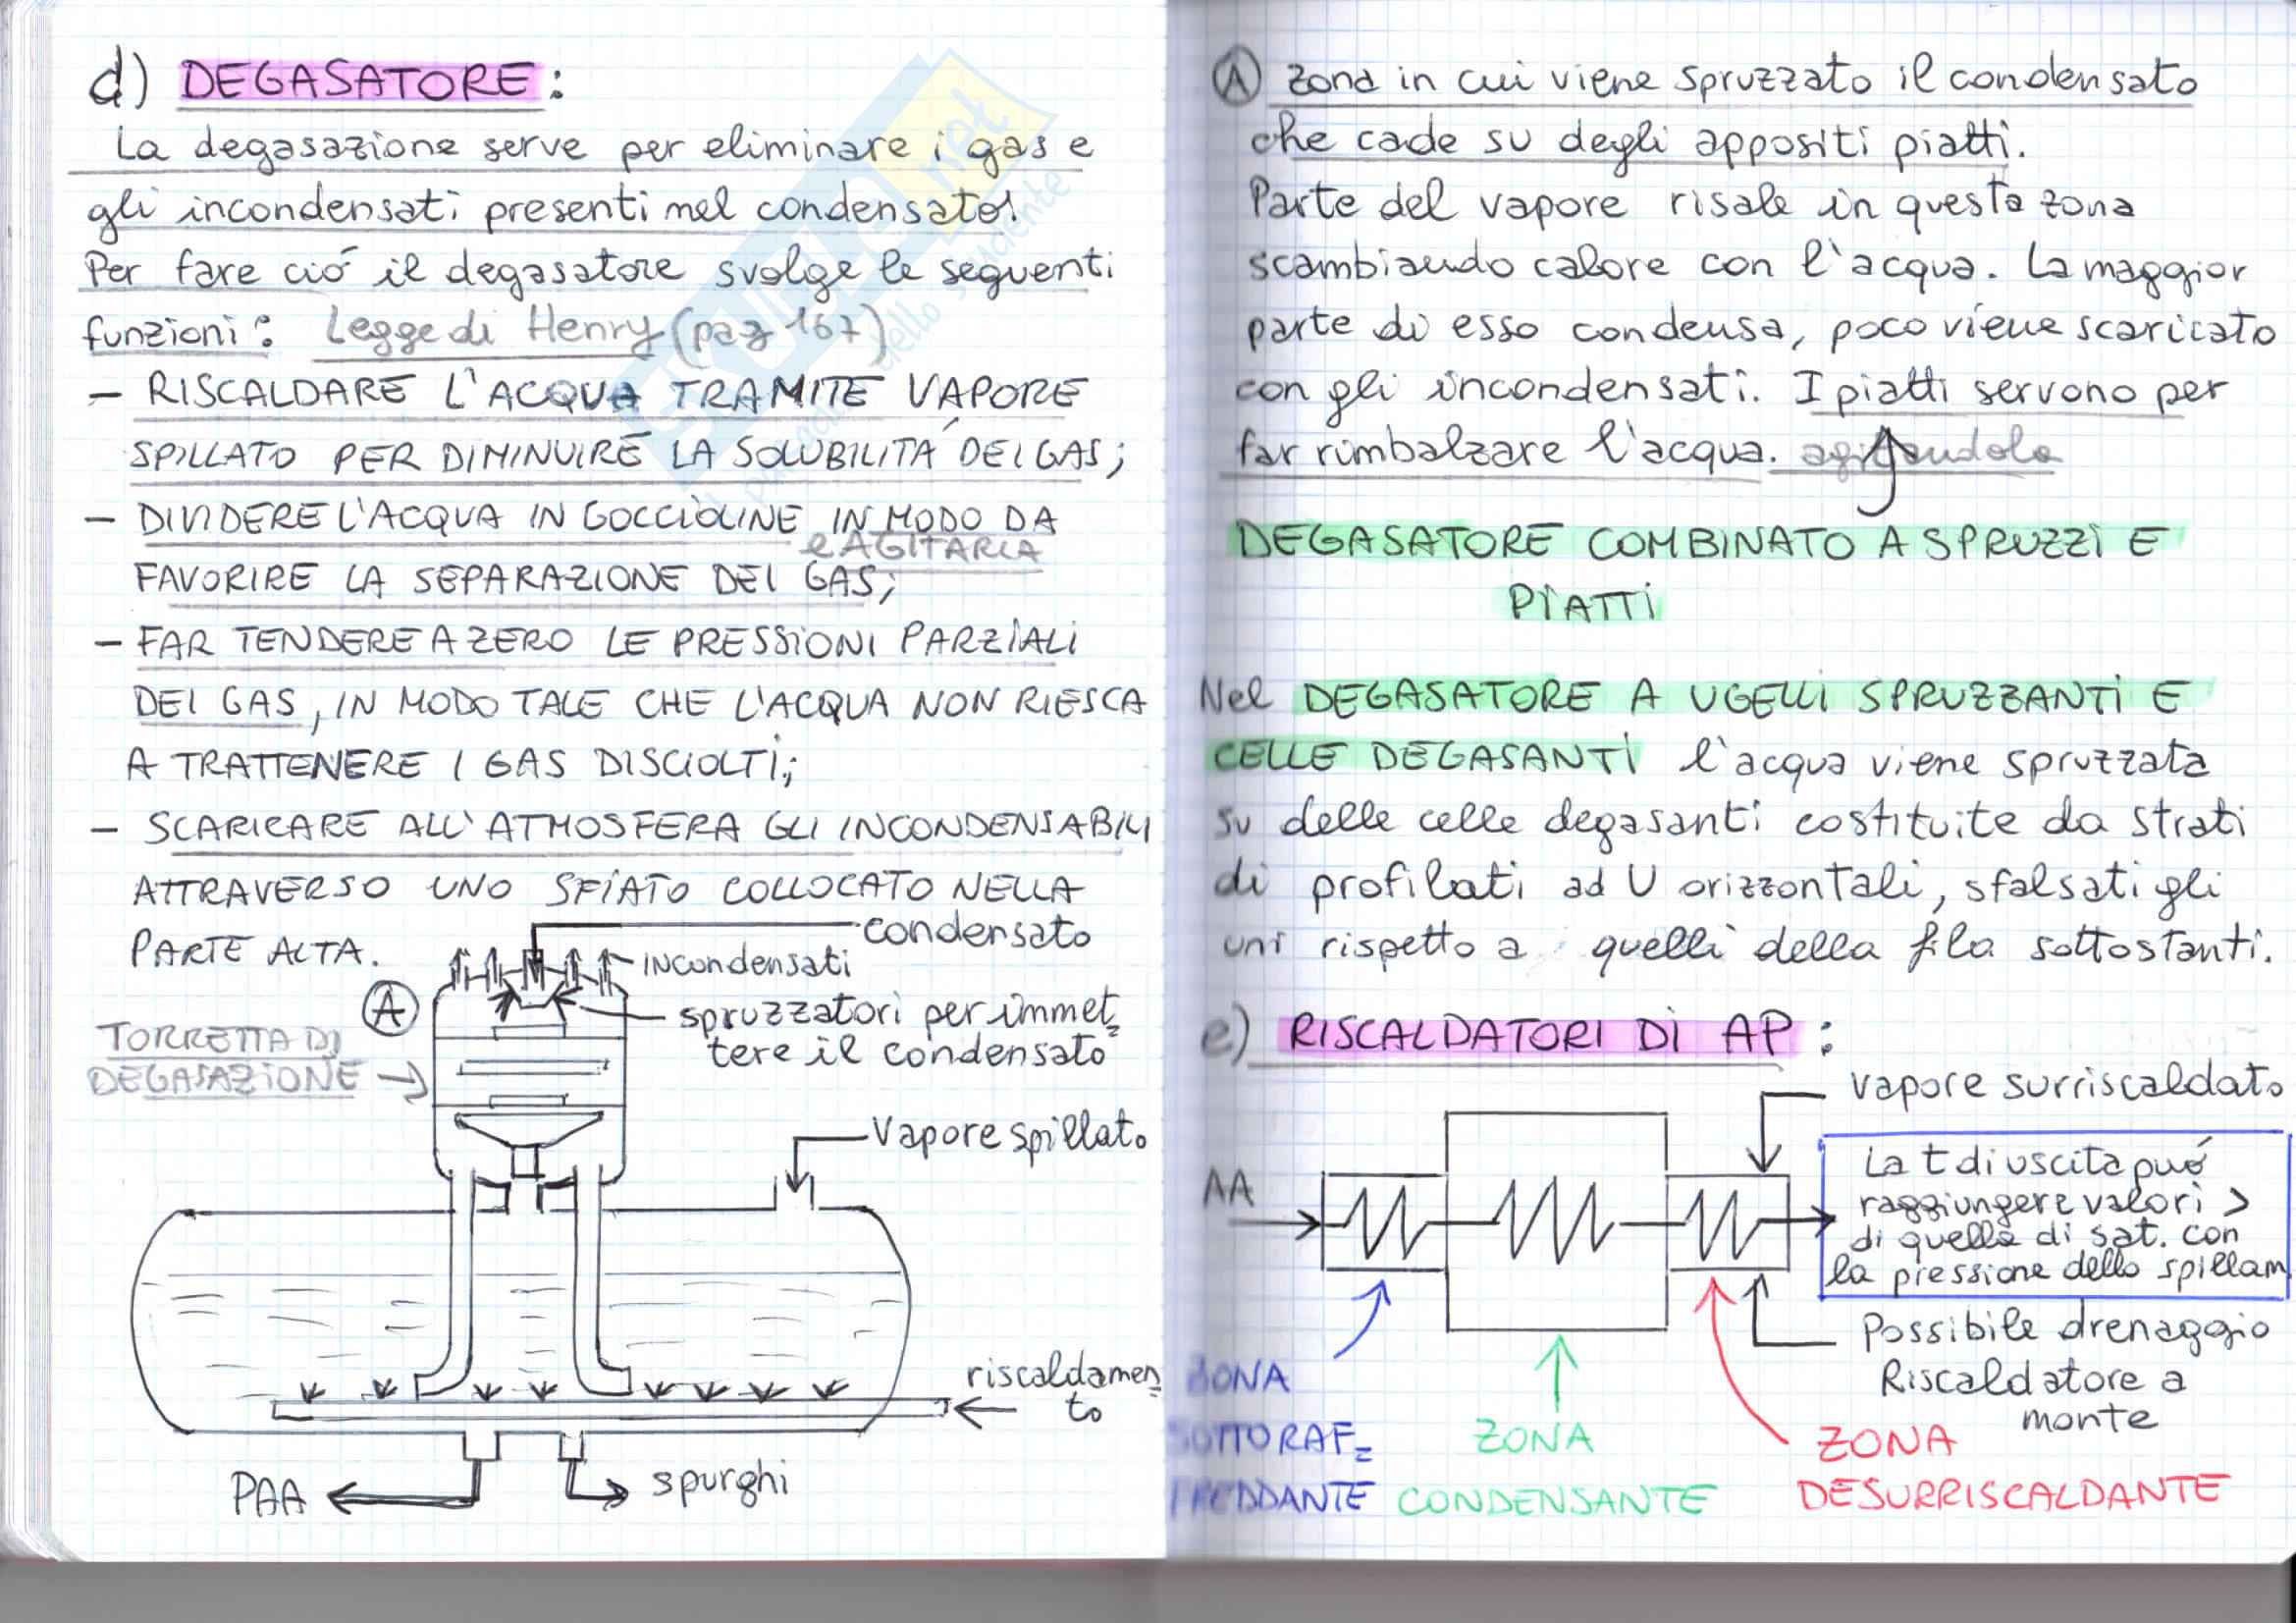 d) DEGASATORE:
La degasazione serve per eliminare i gas e
gli incondensati presenti nel condensato!
Per fare ció il degasatore svolge le seguenti
funzioni: Legge di Henry (pag 167)
- RISCALDARE L'ACQUA TRAMITE VAPORE
SPILLATO PER DIMINUIRE LA SOLUBILITÁ DEI GAS;
- DIVIDERE L'ACQUA IN GOCCIOLINE IN MODO DA
e AGITARLA
FAVORIRE LA SEPARAZIONE DEI GAS;
- FAR TENDERE A ZERO LE PRESSIONI PARZIALI
DEI GAS, IN MODO TALE CHE L'ACQUA NON RIESCA
A TRATTENERE I GAS DISCIOLTI;
- SCARICARE ALL'ATMOSFERA GLI INCONDENSABILI
ATTRAVERSO UNO SFIATO COLLOCATO NELLA
PARTE ALTA.
condensato
incondensati
A
spruzzatori per immet=
tere il condensato
TORRETTA DI
DEGASAZIONE
Vapore spillato
riscaldamen=
to
PAA
spurghi
A zona in cui viene spruzzato il condensato
che cade su degli appositi piatti.
Parte del vapore risale in questa zona
scambiando calore con l'acqua. La maggior
parte di esso condensa, poco viene scaricato
con gli incondensati. I piatti servono per
far rimbalzare l'acqua. agitandola
DEGASATORE COMBINATO A SPRUZZI E
PIATTI
Nel DEGASATORE A UGELLI SPRUZZANTI E
CELLE DEGASANTI l'acqua viene spruzzata
su delle celle degasanti costituite da strati
di profilati ad U orizzontali, sfalsati gli
uni rispetto a quelli della fila sottostanti.
e) RISCALDATORI DI AP:
vapore surriscaldato
AA
La t di uscita puó
raggiungere valori >
di quella di sat. con
la pressione dello spillam
Possibile drenaggio
Riscaldatore a
monte
ZONA
SOTTORAF=
FREDDANTE
ZONA
CONDENSANTE
ZONA
DESURRISCALDANTE